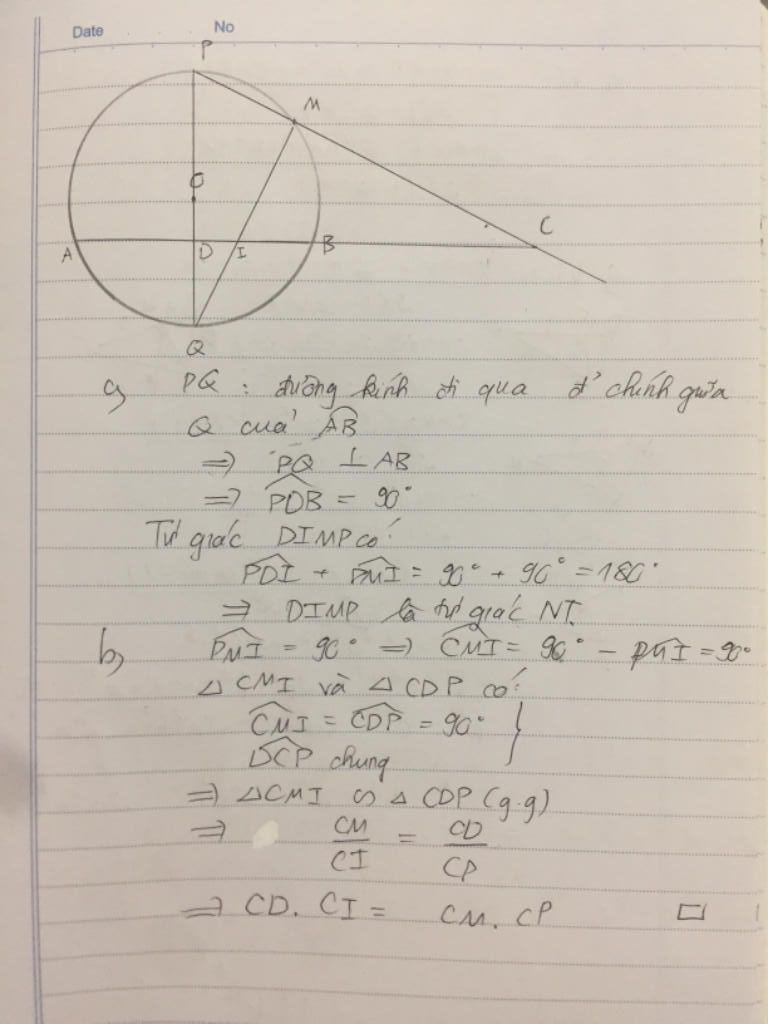 Date No
P
M
O
C
A D I B
Q
a) PQ : đường kính đi qua đ' chính giữa
Q cuả AB
⇒ PQ ⊥ AB
⇒ PDB = 90°
Tứ giác DIMP có:
PDI + PMI = 90° + 90° = 180°
⇒ DIMP là tứ giác NT.
b) PMI = 90° ⇒ CMI = 90° - PMI = 90°
△ CMI và △ CDP có:
CMI = CDP = 90° }
DCP chung
⇒ △CMI ∽ △ CDP (g.g)
⇒ CM/CI = CD/CP
⇒ CD. CI = CM. CP □